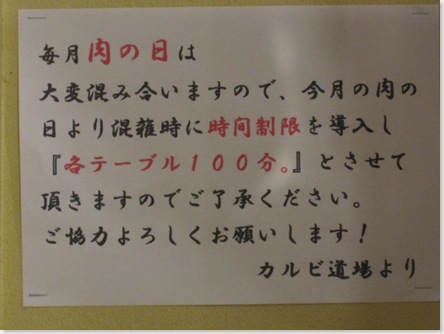 毎月肉の日は
大変混み合いますので、今月の肉の
日より混雑時に時间制限を導入し
『各テーブル１００分。』とさせて
頂きますのでご了承ください。
ご協力よろしくお願いします！
カルビ道場より